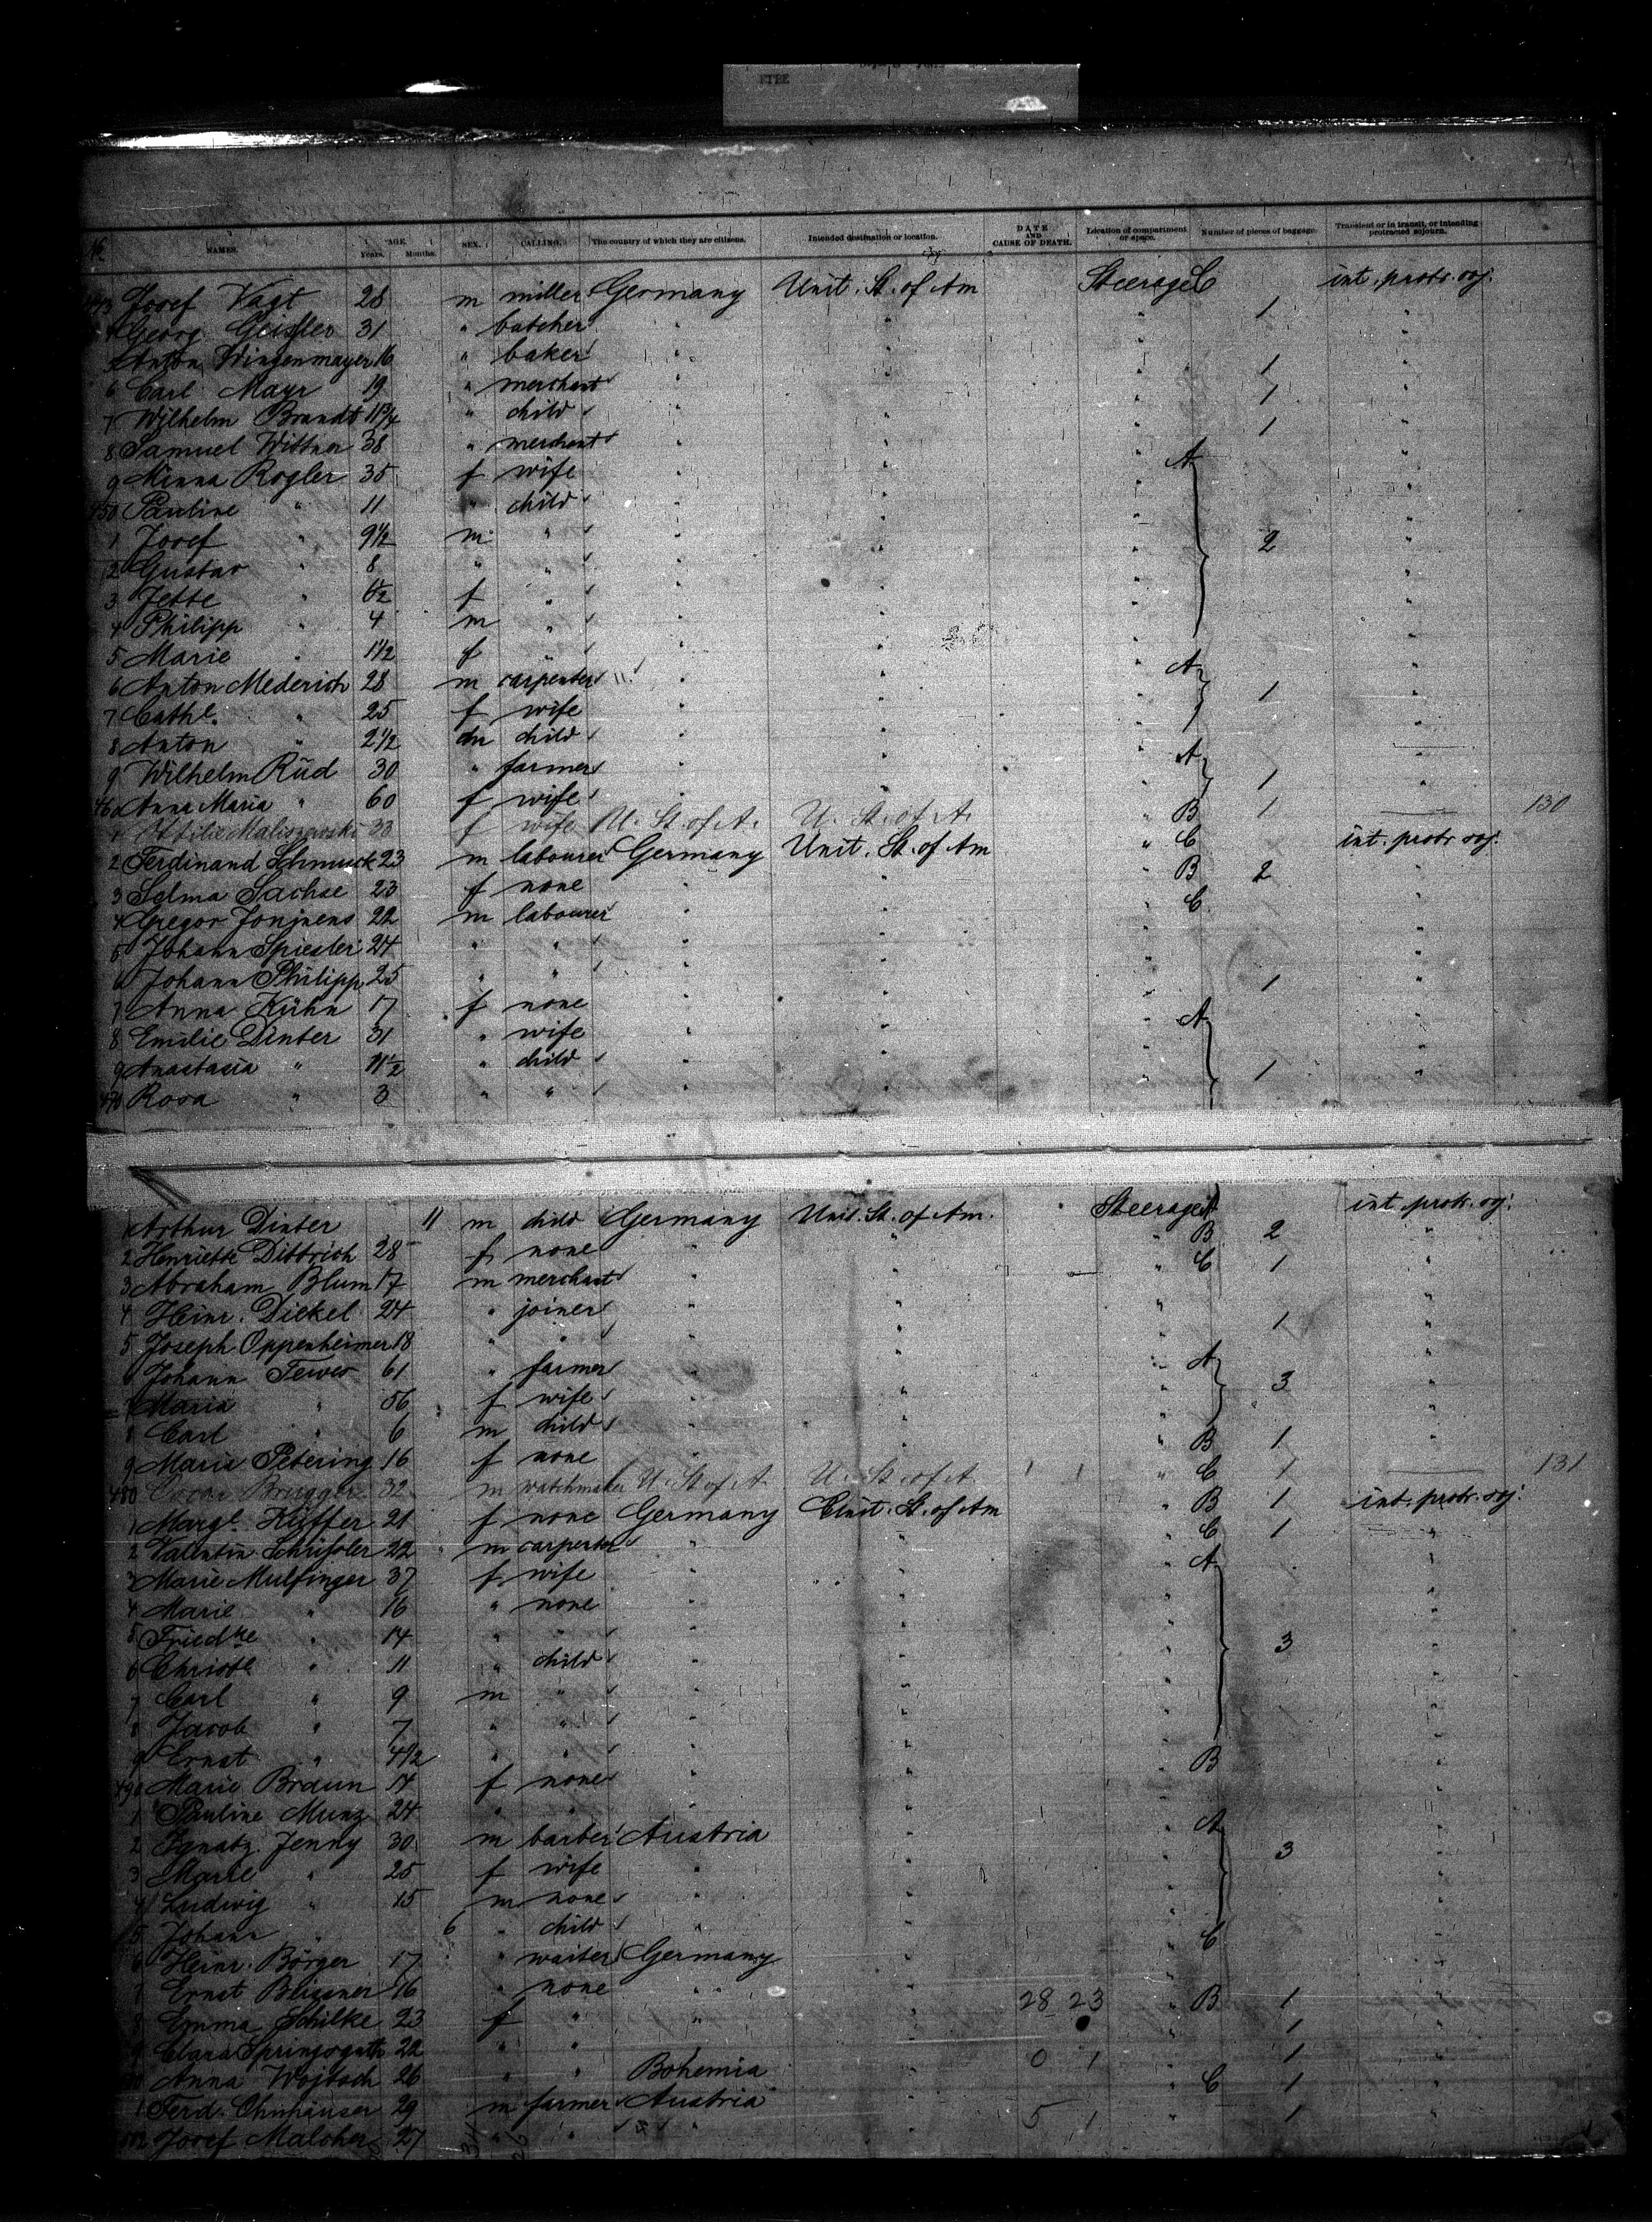 NAMES. AGE. Years. Months. SEX. CALLING. The country of which they are citizens. Intended destination or location. DATE AND CAUSE OF DEATH. Location of compartment or space. Number of pieces of baggage. Transient or in transit, or intending protracted sojourn.
Josef Vagt 28 m miller Germany Unit. St. of Am Steerage C 1 int. protr. soj.
4 Georg Geissler 31 " butcher " " " "
5 Anton Wingenmayer 16 " baker " " " 1 "
6 Carl Mayr 19 " merchant " " " 1 "
7 Wilhelm Brandt 11 3/4 " child " " " 1 "
8 Samuel Wittner 38 " merchant " " " "
9 Minna Rogler 35 f wife " " " A "
450 Pauline " 11 " child " " " "
1 Josef " 9 1/2 m " " " " 2 "
2 Gustav " 8 " " " " " "
3 Jette " 6 1/2 f " " " " "
4 Philipp " 4 m " " " " "
5 Marie " 1 1/2 f " " " " "
6 Anton Mederich 28 m carpenter " " " A "
7 Cathe. " 25 f wife " " " 1 "
8 Anton " 2 1/2 m child " " " "
9 Wilhelm Rüd 30 " farmer " " " A
460 Anna Maria " 60 f wife " " " 1 "
1 Maliszewski 33 f wife U. St. of A. U. St. of A. " B 1 130
2 Ferdinand Schmuck 23 m labourer Germany Unit. St. of Am " C int. protr. soj.
3 Selma Sachse 23 f none " " " B 2 "
4 Gregor 22 m labourer " " " C "
5 Johann 24 " " " " " "
6 Johann Philipp 25 " " " " " "
7 Anna Kühn 17 f none " " " 1 "
8 Emilie Dinter 31 " wife " " " A "
9 Anastasia " 11 1/2 " child " " " 1 "
470 Rosa " 3 " " " " " "
1 Arthur Dinter 11 m child Germany Unit. St. of Am. Steerage A int. protr. soj.
2 Henriette Dittrich 28 f none " " " B 2 "
3 Abraham Blum 17 m merchant " " " C 1 "
4 Heinr. Diekel 24 " joiner " " " "
5 Joseph Oppenheimer 18 " " " " " 1 "
6 Johann Tewes 61 " farmer " " " A "
7 Maria " 56 f wife " " " 3 "
8 Carl " 6 m child " " " "
9 Maria Petering 16 f none " " " B 1
480 Oscar Brugger 32 m watchmaker U. St. of A. U. St. of A. " C 1 131
1 Margt. Küffer 21 f none Germany Unit. St. of Am " B 1 int. protr. soj.
2 Valentin 22 m carpenter " " " C 1 "
3 Marie Mulfinger 37 f wife " " " A "
4 Marie " 16 " none " " " "
5 Friedke " 14 " " " " " "
6 Christe " 11 " child " " " 3 "
7 Carl " 9 m " " " " "
8 Jacob " 7 " " " " " "
9 Ernst " 4 1/2 " " " " " "
490 Marie Braun 14 f none " " " B "
1 Pauline Munz 24 " " " " " "
2 Ignatz Jenny 30 m barber Austria " " A "
3 Marie " 25 f wife " " " 3 "
4 Ludwig " 15 m none " " " "
5 Johann " 6 " child " " " "
6 Heinr. Börger 17 " waiter Germany " " C "
7 Ernst 16 " none " " " "
8 Emma Schilke 23 f " " " 28 23 " B 1 "
9 Clara 22 " " " " " 1 "
Anna Wojtach 26 " " Bohemia " 0 1 " 1 "
1 Ferd. 29 m farmer Austria " " C 1 "
502 Josef Malcher 27 " " " " 5 1 " 1 "